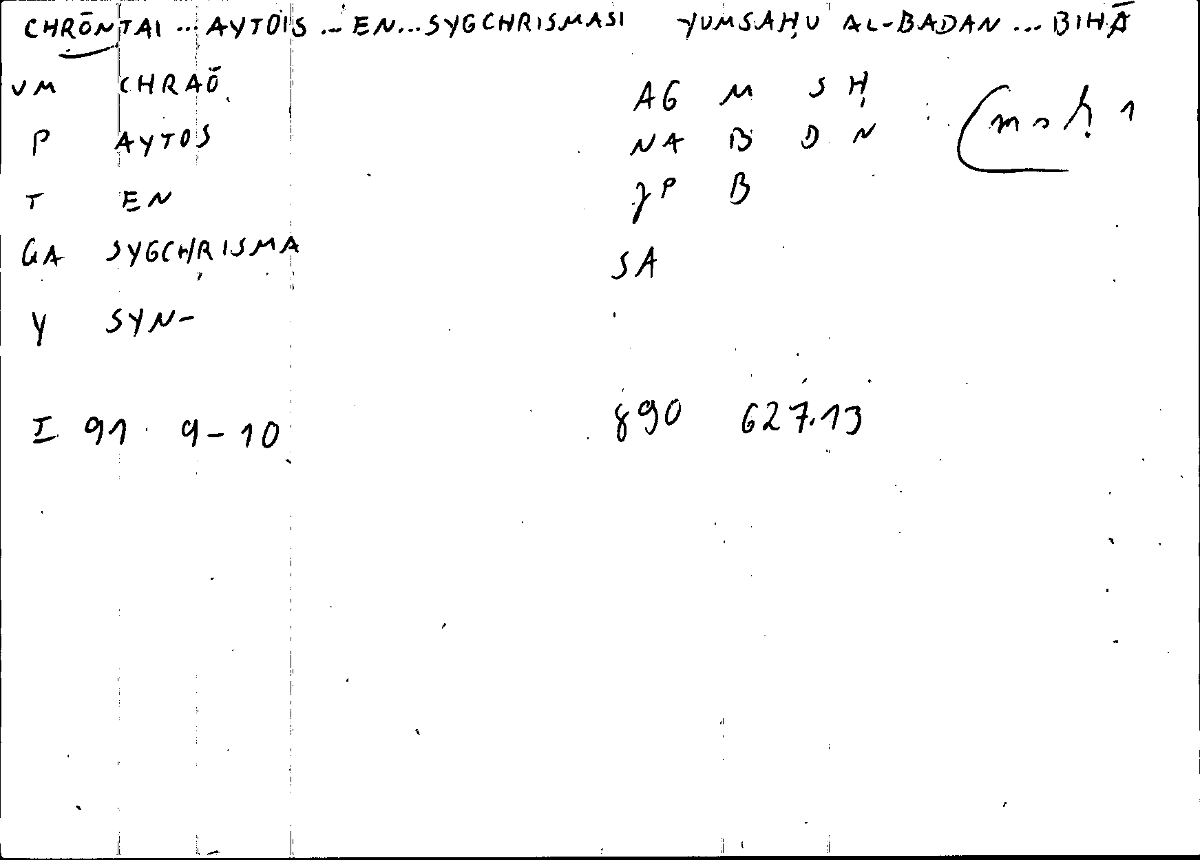 CHRŌNTAI ... AYTOIS ... EN ... SYGCHRISMASI YUMSAḤU AL-BADAN ... BIHĀ
VM CHRAŌ AG M S Ḥ
P AYTOS NA B D N
T EN JP B
GA SYGCHRISMA SA
Y SYN-
I 91 9-10 890 627.13